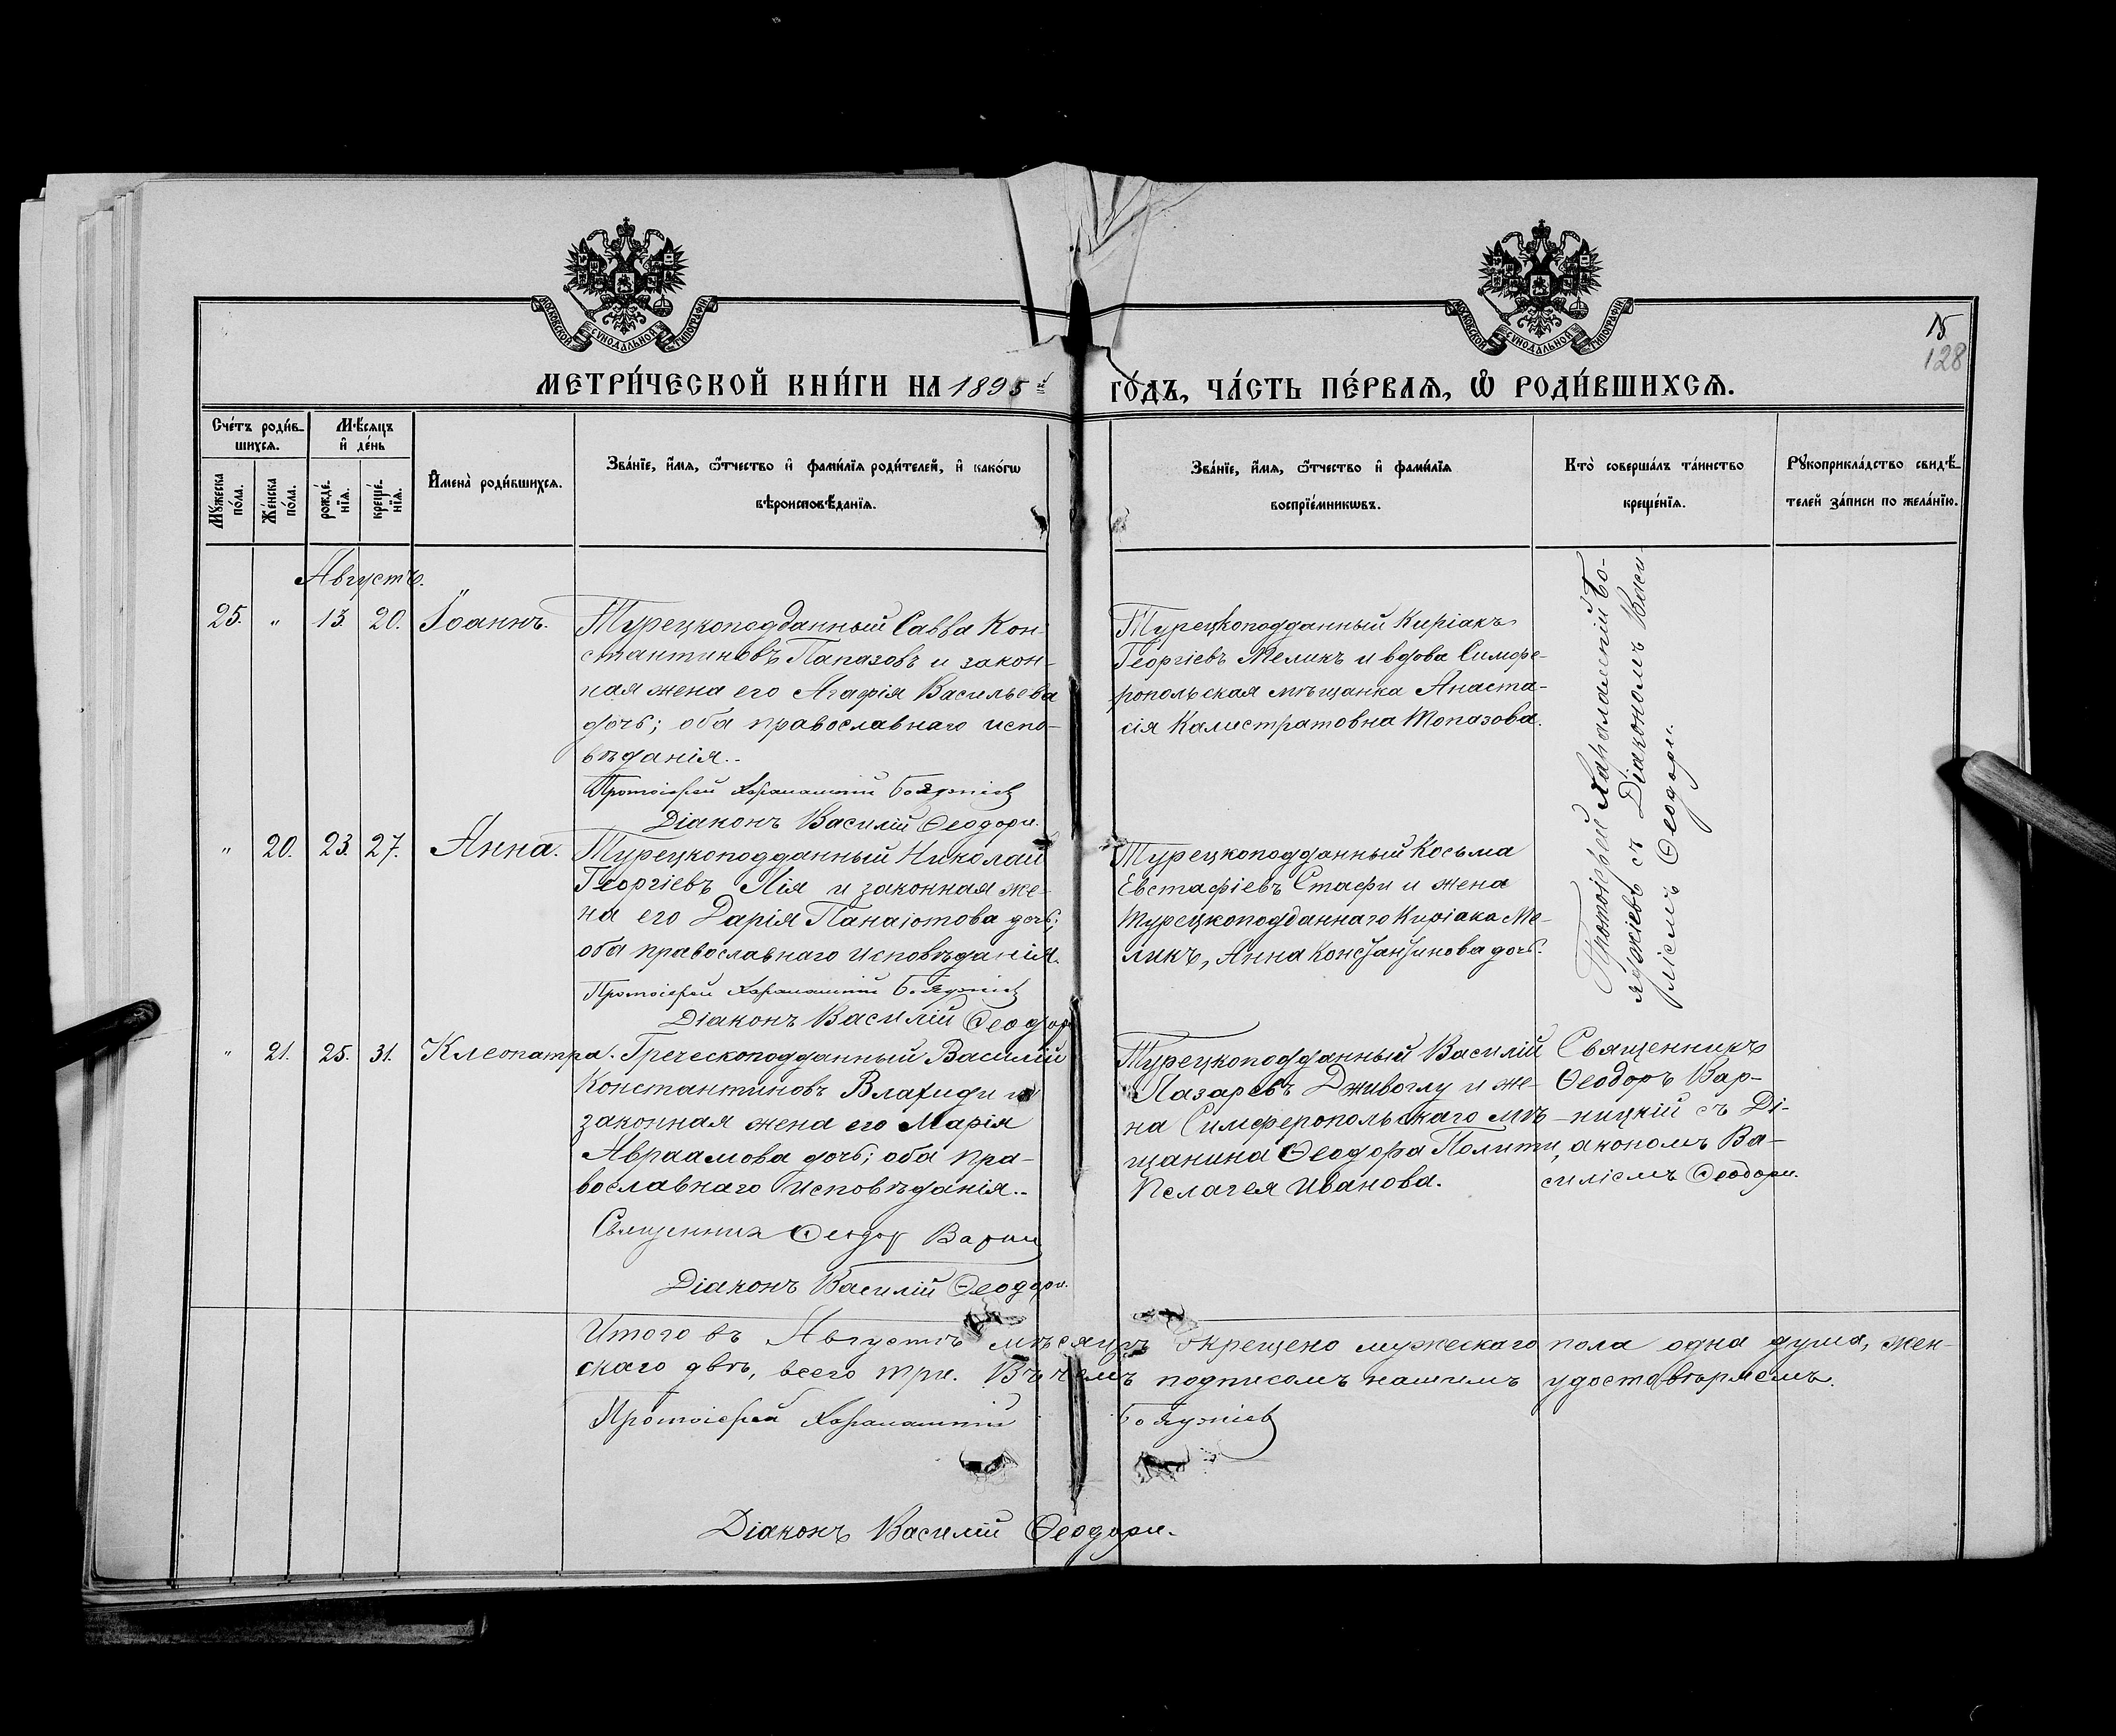 МОСКОВСКОЙ СѴНОДАЛЬНОЙ ТИПОГРАФІИ
МОСКОВСКОЙ СѴНОДАЛЬНОЙ ТИПОГРАФІИ
15
128
МЕТРИ́ЧЕСКОЙ КНИ́ГИ НА 1895й ГО́ДЪ, ЧА́СТЬ ПЕ́РВАѦ, Ѽ РОДИ́ВШИХСѦ.
Счéтъ роди́в-
шихсѧ.
Мѣ́сѧцъ
и҆ дéнь
Мꙋ́жеска
по́ла.
Жéнска
по́ла.
рождé-
нїѧ.
крещé-
нїѧ.
И҆менà роди́вшихсѧ.
Звáнїе, и҆́мѧ, ѻ҆́тчество и҆ фами́лїѧ роди́телей, и҆ какóгѡ
вѣроисповѣ́данїѧ.
Звáнїе, и҆́мѧ, ѻ҆́тчество и҆ фами́лїѧ
воспрїéмникѡвъ.
Ктò совершáлъ тáинство
крещéнїѧ.
Рꙋкоприклáдство свидѣ́-
телей зáписи по желáнїю.
Августъ.
25. " 13. 20. Іоаннъ.
Турецкоподданный Савва Кон-
стантиновъ Папазовъ и закон-
ная жена его Агафія Васильева
дочь; оба православнаго испо-
вѣданія.
Протоіерей Харалампій Бояджіевъ
Діаконъ Василій Ѳеодори.
Турецкоподданный Киріакъ
Георгіевъ Меликъ и вдова Симфе-
ропольская мѣщанка Анаста-
сія Калистратовна Топазова.
Протоіерей Харалампій Бо-
яджіевъ съ Діакономъ Васи
ліемъ Ѳеодори.
" 20. 23. 27. Анна.
Турецкоподданный Николай
Георгіевъ Лія и законная же-
на его Дарія Панаіотова дочь;
оба православнаго исповѣданія.
Протоіерей Харалампій Бояджіевъ
Діаконъ Василій Ѳеодори
Турецкоподданный Косьма
Евстафіевъ Стафи и жена
турецкоподданнаго Киріака Ме-
ликъ, Анна Константинова дочь.
" 21. 25. 31. Клеопатра.
Греческоподданный Василій
Константиновъ Влахиди и
законная жена его Марія
Авраамова дочь; оба пра-
вославнаго исповѣданія.
Священникъ Ѳеодоръ
Діаконъ Василій Ѳеодори.
Турецкоподданный Василій
Лазаревъ Дживоглу и же-
на Симферопольскаго мѣ-
щанина Ѳеодора Полити,
Пелагея Иванова.
Священникъ
Ѳеодоръ Вар-
ницкій съ Ді-
акономъ Ва-
силіемъ Ѳеодори.
Итого въ Августѣ мѣсяцѣ окрещено мужескаго пола одна душа, жен-
скаго двѣ, всего три. Въ чемъ подписомъ нашимъ удостовѣряемъ.
Протоіерей Харалампій Бояджіевъ
Діаконъ Василій Ѳеодори.